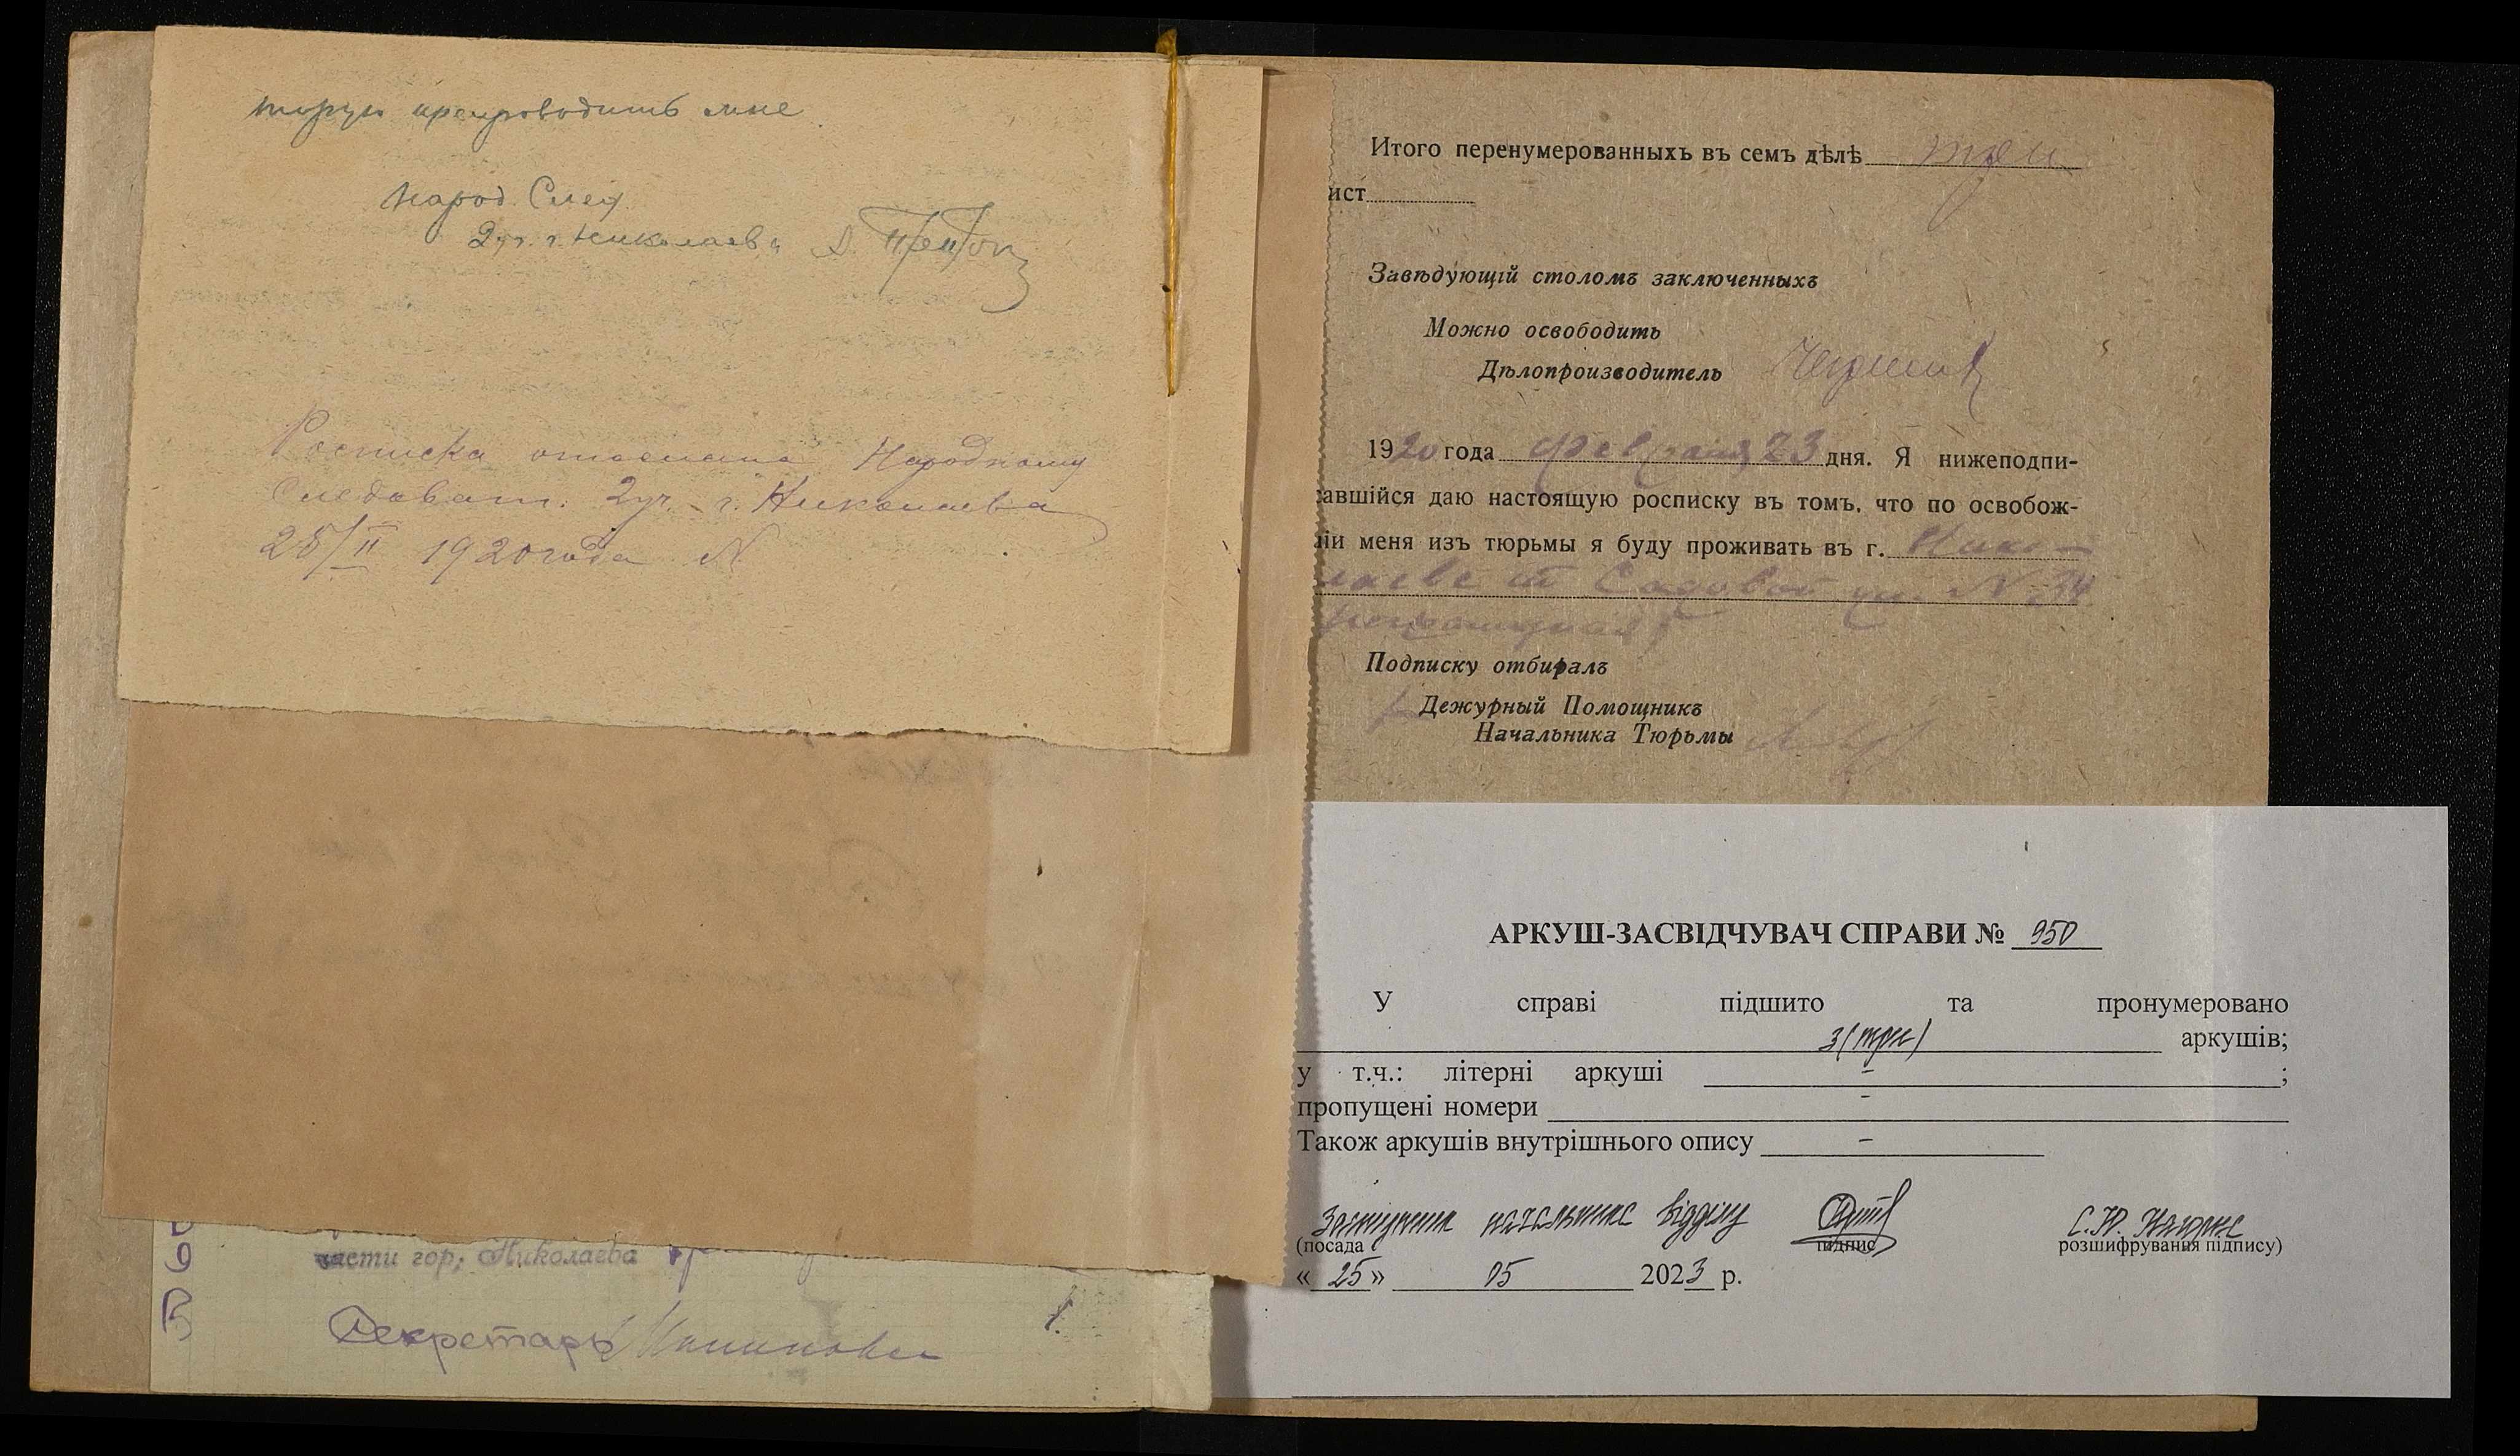 торую препроводить мне
Народ. След.
2 уч. г. Николаева
Росписка отослана Народному
Следоват. 2 уч. г. Николаева
25/II 1920 года N
части гор. Николаева
Секретарь
Итого перенумерованныхъ въ семъ дѣлѣ три
ист
Завѣдующій столомъ заключенныхъ
Можно освободить
Дѣлопроизводитель
1920 года Февраля 23 дня. Я нижеподпи-
авшійся даю настоящую росписку въ томъ, что по освобож-
іи меня изъ тюрьмы я буду проживать въ г. Нико-
лаеве Садовой ул. N 34
Подписку отбиралъ
Дежурный Помощникъ
Начальника Тюрьмы
АРКУШ-ЗАСВІДЧУВАЧ СПРАВИ № 950
У справі підшито та пронумеровано
3 (три) аркушів;
у т.ч.: літерні аркуші - ;
пропущені номери -
Також аркушів внутрішнього опису -
Заступник начальника відділу
(посада підпис розшифрування підпису)
« 25 » 05 2023 р.